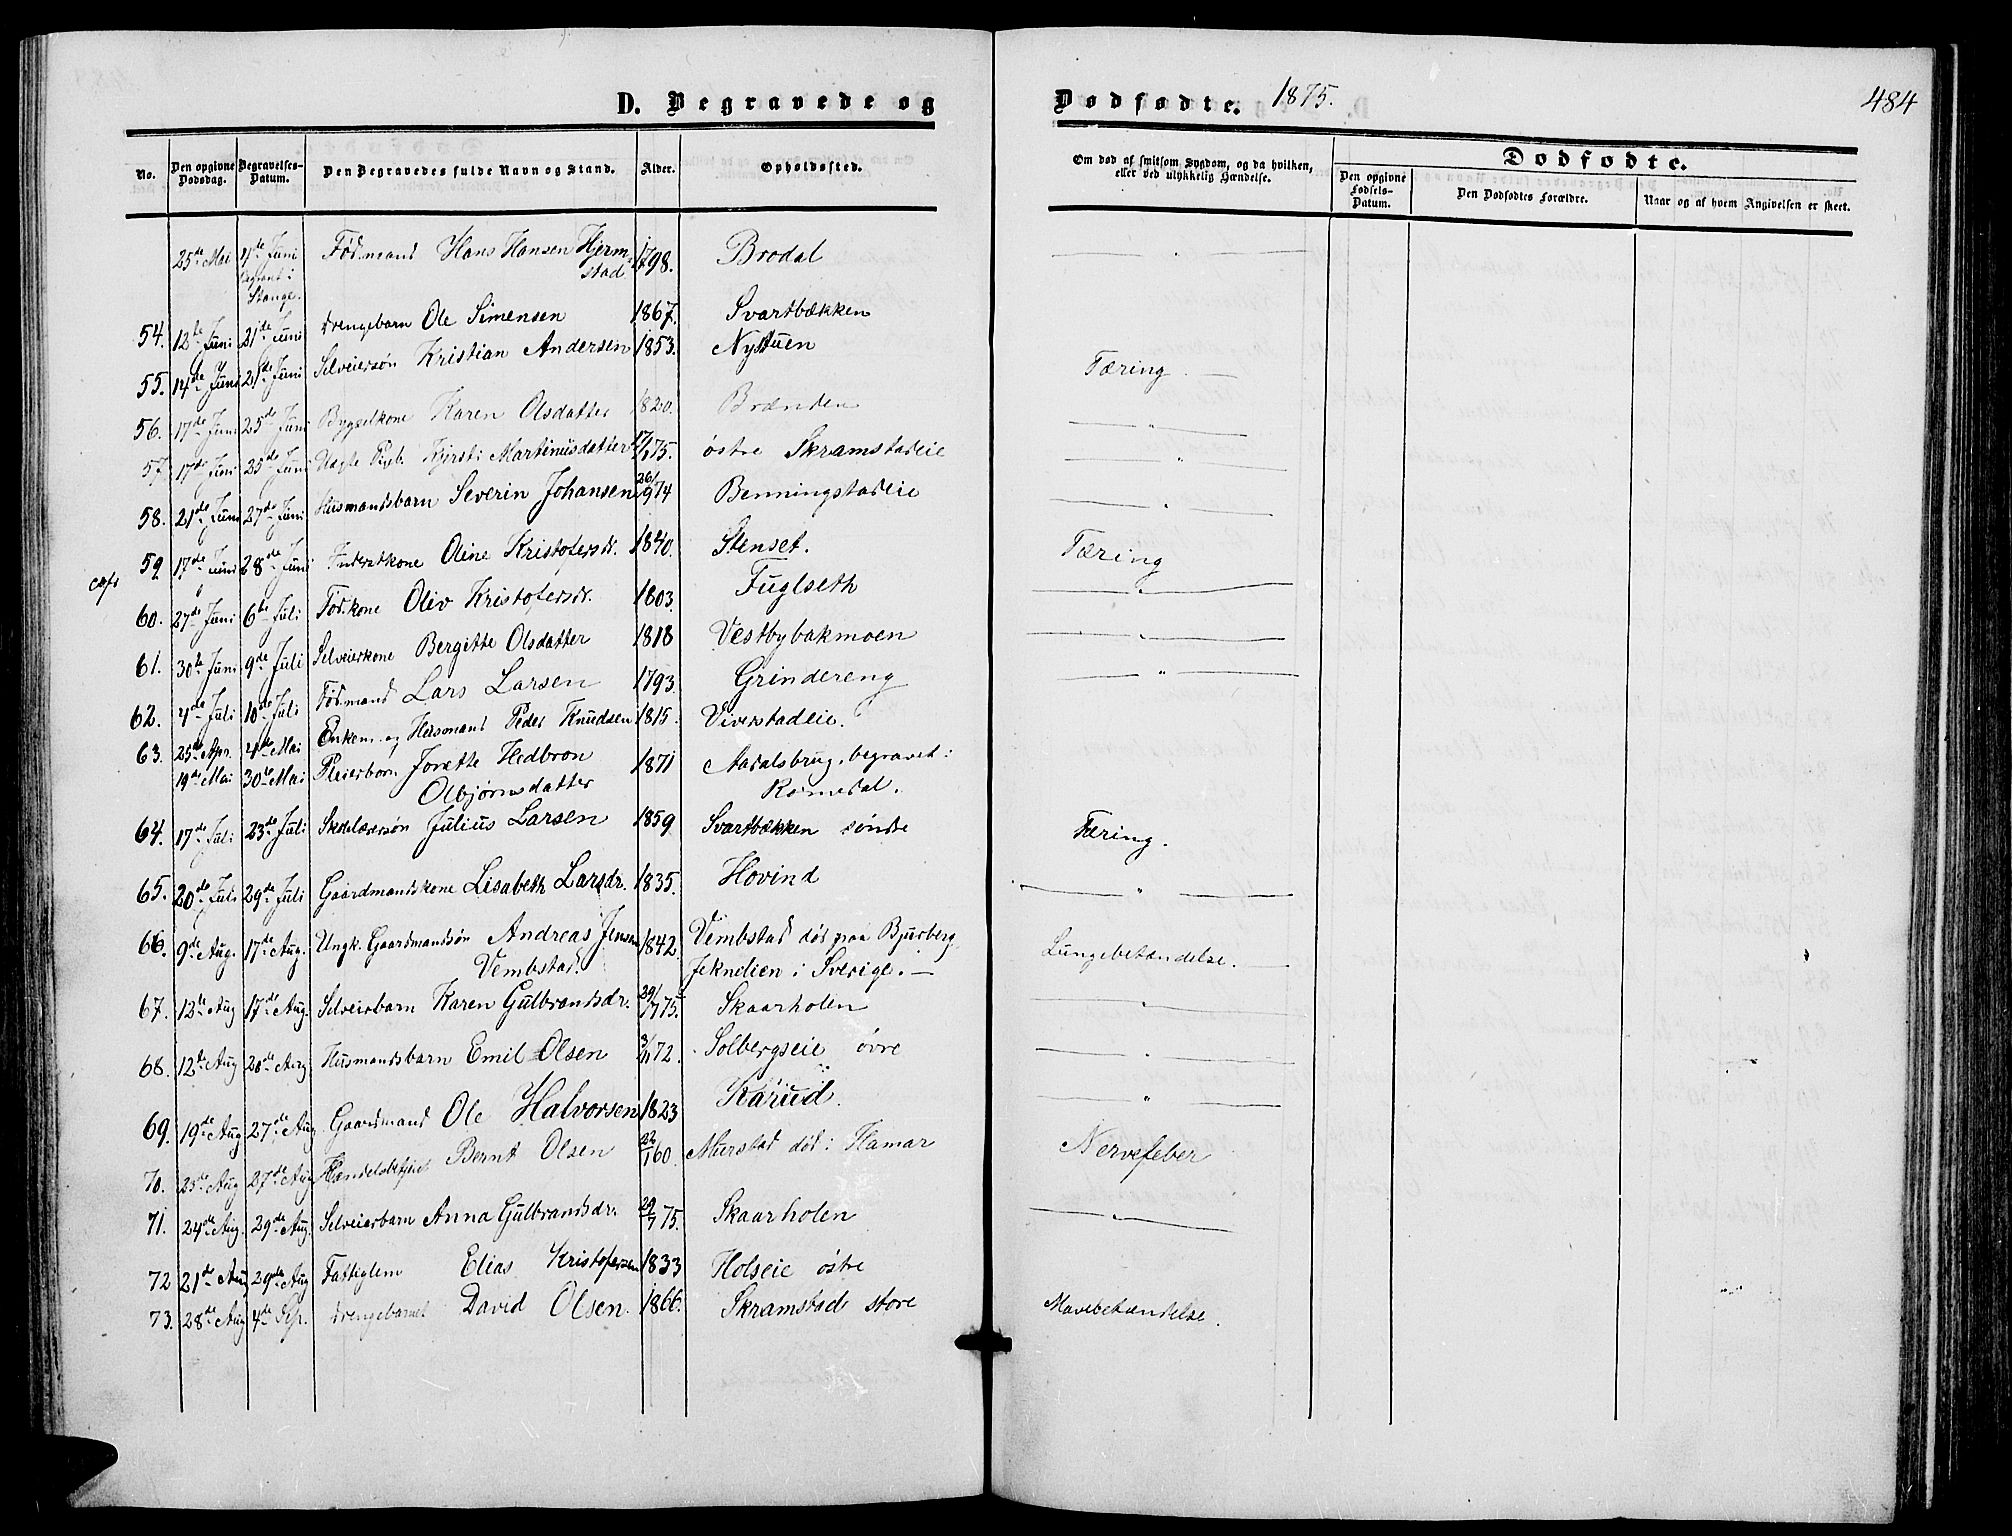 D. Begravede og
Dødfødte. 1875.
484
No.
Den opgivne Dødsdag.
Begravelses-Datum.
Den Begravedes fulde Navn og Stand.
Alder.
Opholdssted.
Om død af smitsom Sygdom, og da hvilken, eller ved ulykkelig Hændelse.
Dødfødte.
Den opgivne Fødsels-Datum.
Den Dødfødtes Forældre.
Naar og af hvem Angivelsen er skeet.
25de Mai 4de Juni Fødmand Hans Hansen Hjerm- 1798. Brodal
begravt i stad
Stange.
54. 12te Juni 21de Juni Drengebarn Ole Simensen 1867. Svartbækken
55. 14de Juni 21de Juni Selveiersøn Kristian Andersen 1853. Nystuen Tæring.
56. 17de Juni 25de Juni Bygselkone Karen Olsdatter 1820. Brænden "
57. 17de Juni 25de Juni Uægte Pigb. Kjersti Martinusdatter 17/1 75. østre Skramstadeie "
58. 21de Juni 27de Juni Husmandsbarn Severin Johansen 26/9 74 Benningstadeie "
59 17de Juni 28de Juni Inderstkone Oline Kristofersdr. 1840. Stenset. Tæring
60. 27de Juni 6te Juli Fødkone Oliv Kristofersdr. 1803. Fuglseth "
61. 30te Juni 9de Juli Selveierkone Bergitte Olsdatter 1818 Vestbybakmoen "
62. 4de Juli 10de Juli Fødmand Lars Larsen 1793. Grindereng "
63. 25de Apr. 4de Mai Enkem. og Husmand Peder Knudsen 1815. Viverstadeie.
19de Mai 30te Mai Pleiebarn Jonette Hedbron 1871 Aadalsbrug, begravet i
Olbjørnsdatter Romedal.
64. 17de Juli 23de Juli Julius Larsen 1859 Svartbækken søndre Tæring.
65. 20de Juli 29de Juli Gaardmandskone Lisabeth Larsdr. 1835. Hovind "
66. 9de Aug. 17de Aug. Ungk. Gaardmandsøn Andreas Jensen 1842 Vembstad død paa Bjurberg Lungebetændelse.
Vembstad. i Sverige.
67. 12te Aug 17de Aug. Selveierbarn Karen Gulbrandsdr. 29/7 75. Skaarholen "
68. 12te Aug 20de Aug Husmandsbarn Emil Olsen 3/11 72. Solbergseie øvre "
69. 19de Aug 27de Aug Gaardmand Ole Halvorsen 1823 Karud. "
70. 25de Aug 27de Aug Handelsbetjent Bernt Olsen 22/1 60. død i Hamar Nervefeber
71. 24de Aug. 29de Aug. Selveierbarn Anna Gulbrandsdr. 29/7 75. Skaarholen "
72 21de Aug 29de Aug Fattiglem Elias Kristofersen 1833 Holseie østre
73. 28de Aug 4de Sep. Drengebarnet David Olsen. 1866. Skramstad store Mavebetændelse.